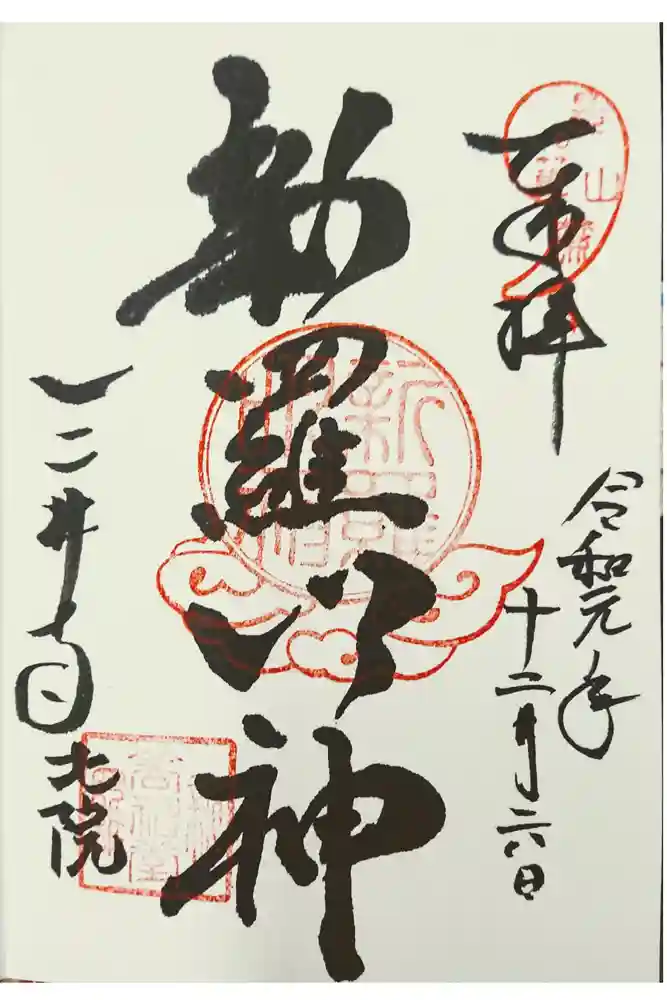 奉拝
令和元年
十二月二六日
新羅明神
新羅明神
三井寺
北院